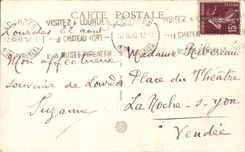 CARTE POSTALE
VISITEZ LOURDES
LE CHATEAU-FORT
MUSÉE PYRÉNÉEN
Lourdes 22 août
Mon affectueux
souvenir de Lourdes
Suzanne
Madame
Place du Théâtre
La Roche-s-yon
Vendée
15